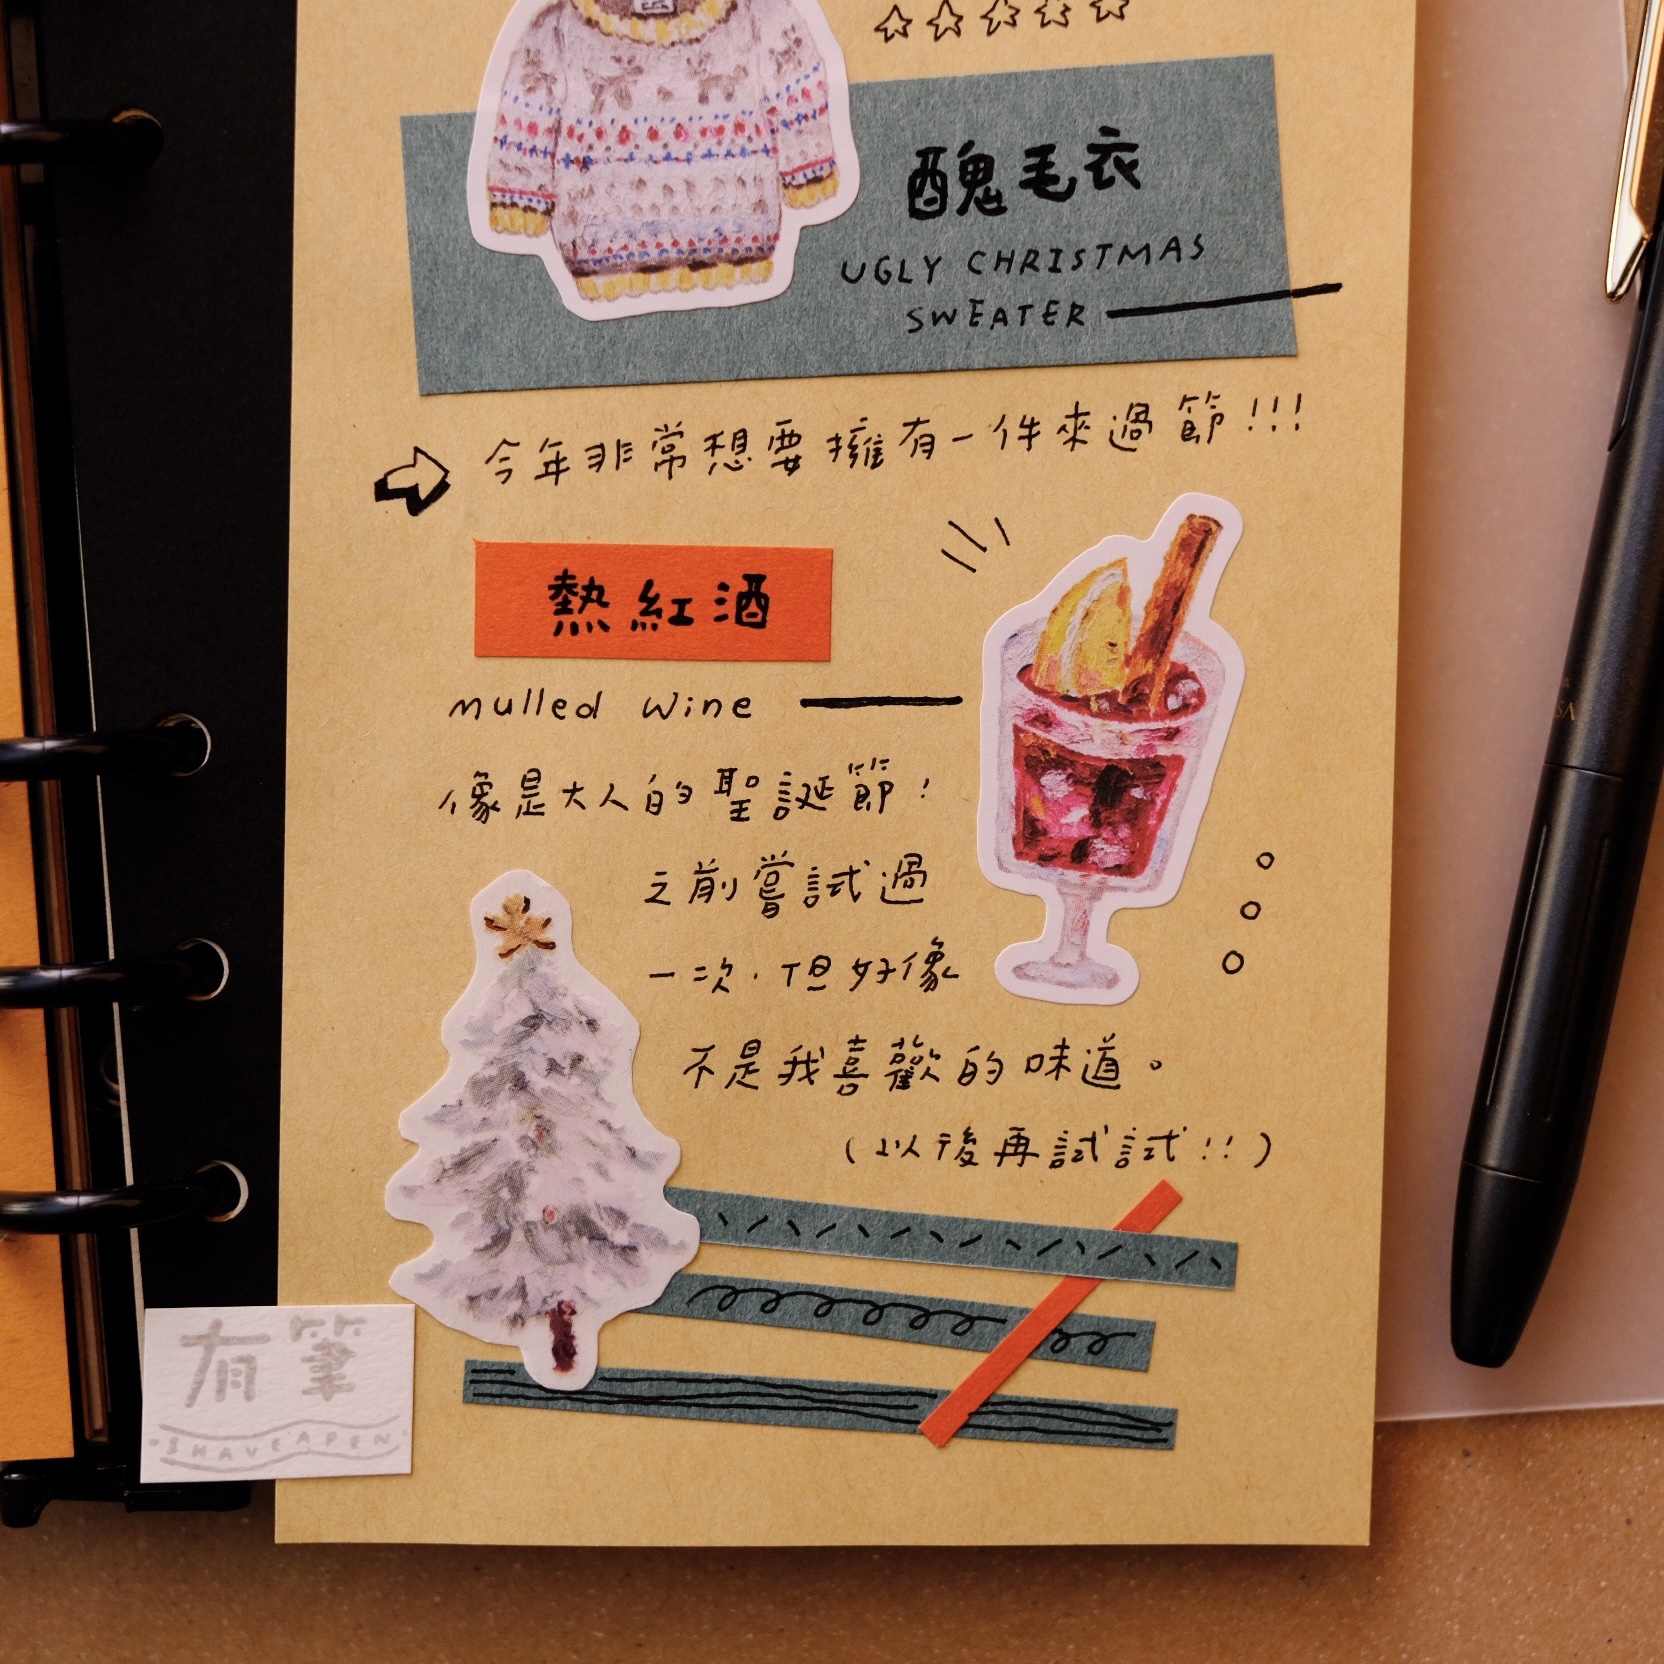 醜毛衣
UGLY CHRISTMAS
SWEATER
今年非常想要擁有一件來過節!!!
熱紅酒
mulled wine
像是大人的聖誕節!
之前嘗試過
一次,但好像
不是我喜歡的味道。
(以後再試試!!)
有筆
I HAVE A PEN